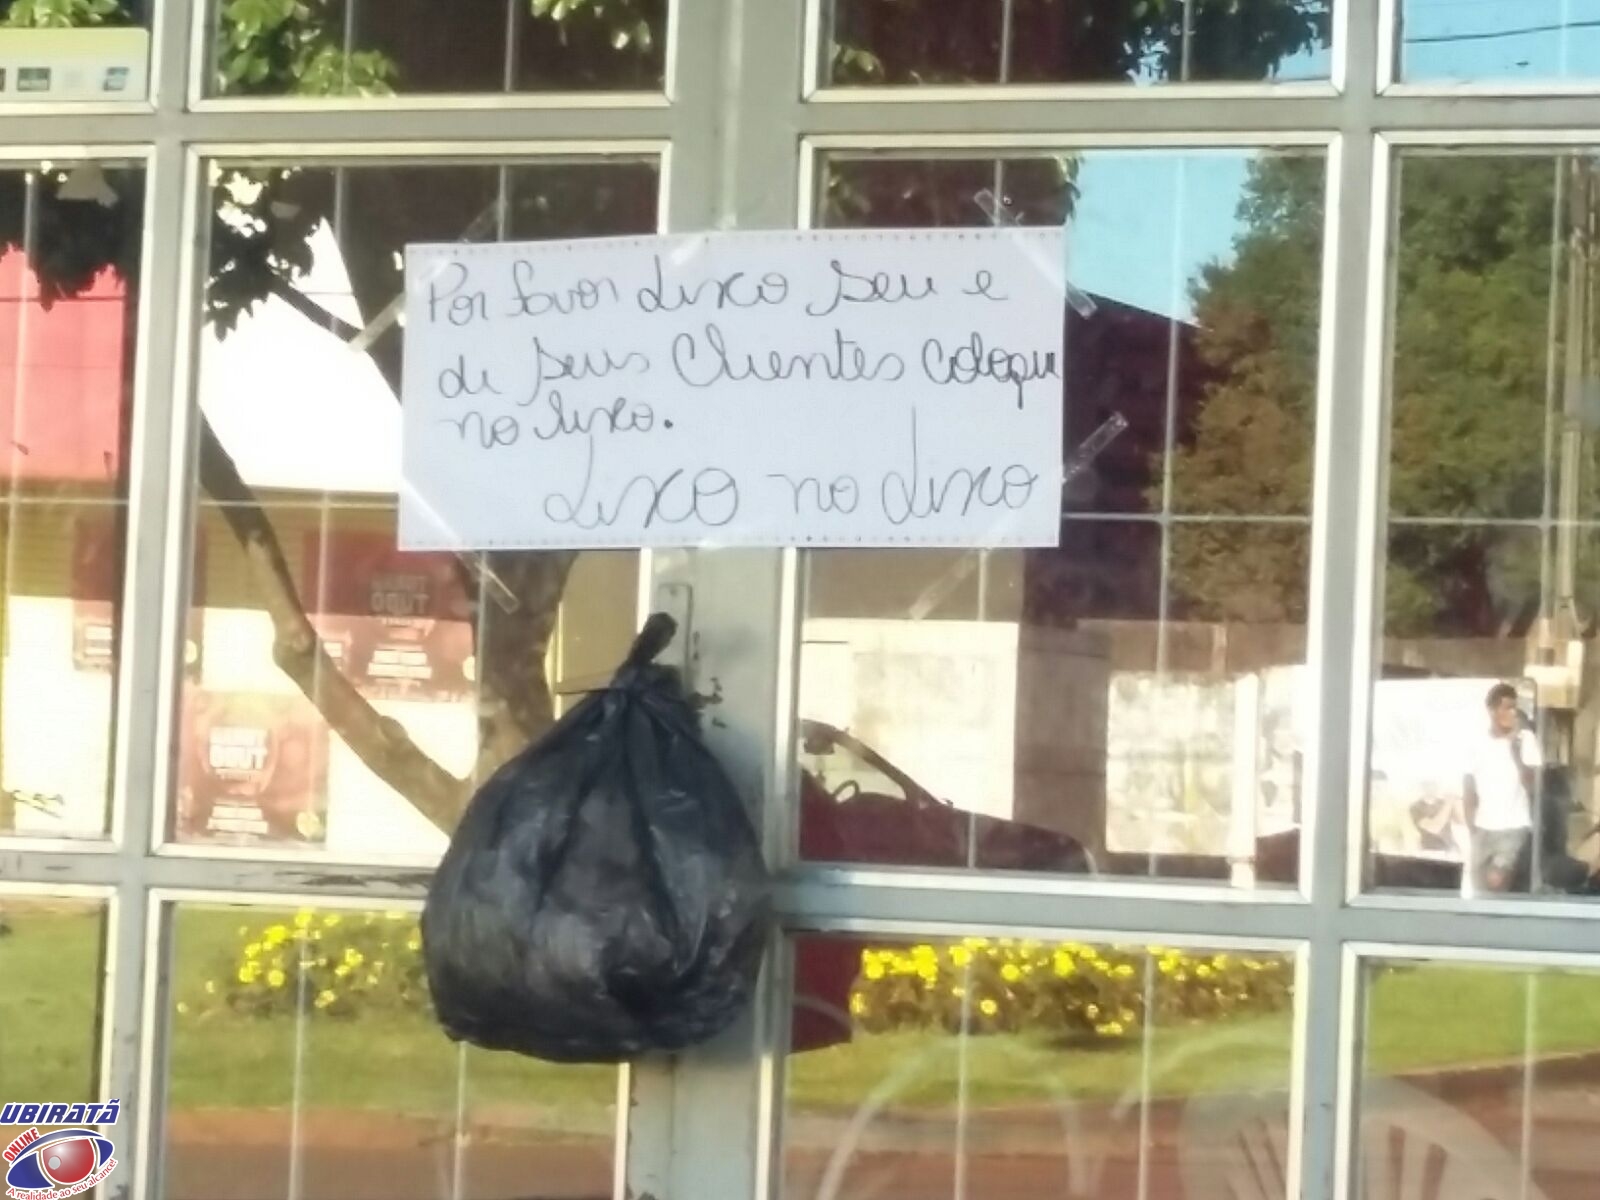 Por favor Lixo seu e
de seus Clientes coloque
no lixo.
Lixo no Lixo
TUDO
UBIRATÃ
ONLINE
A realidade ao seu alcance!